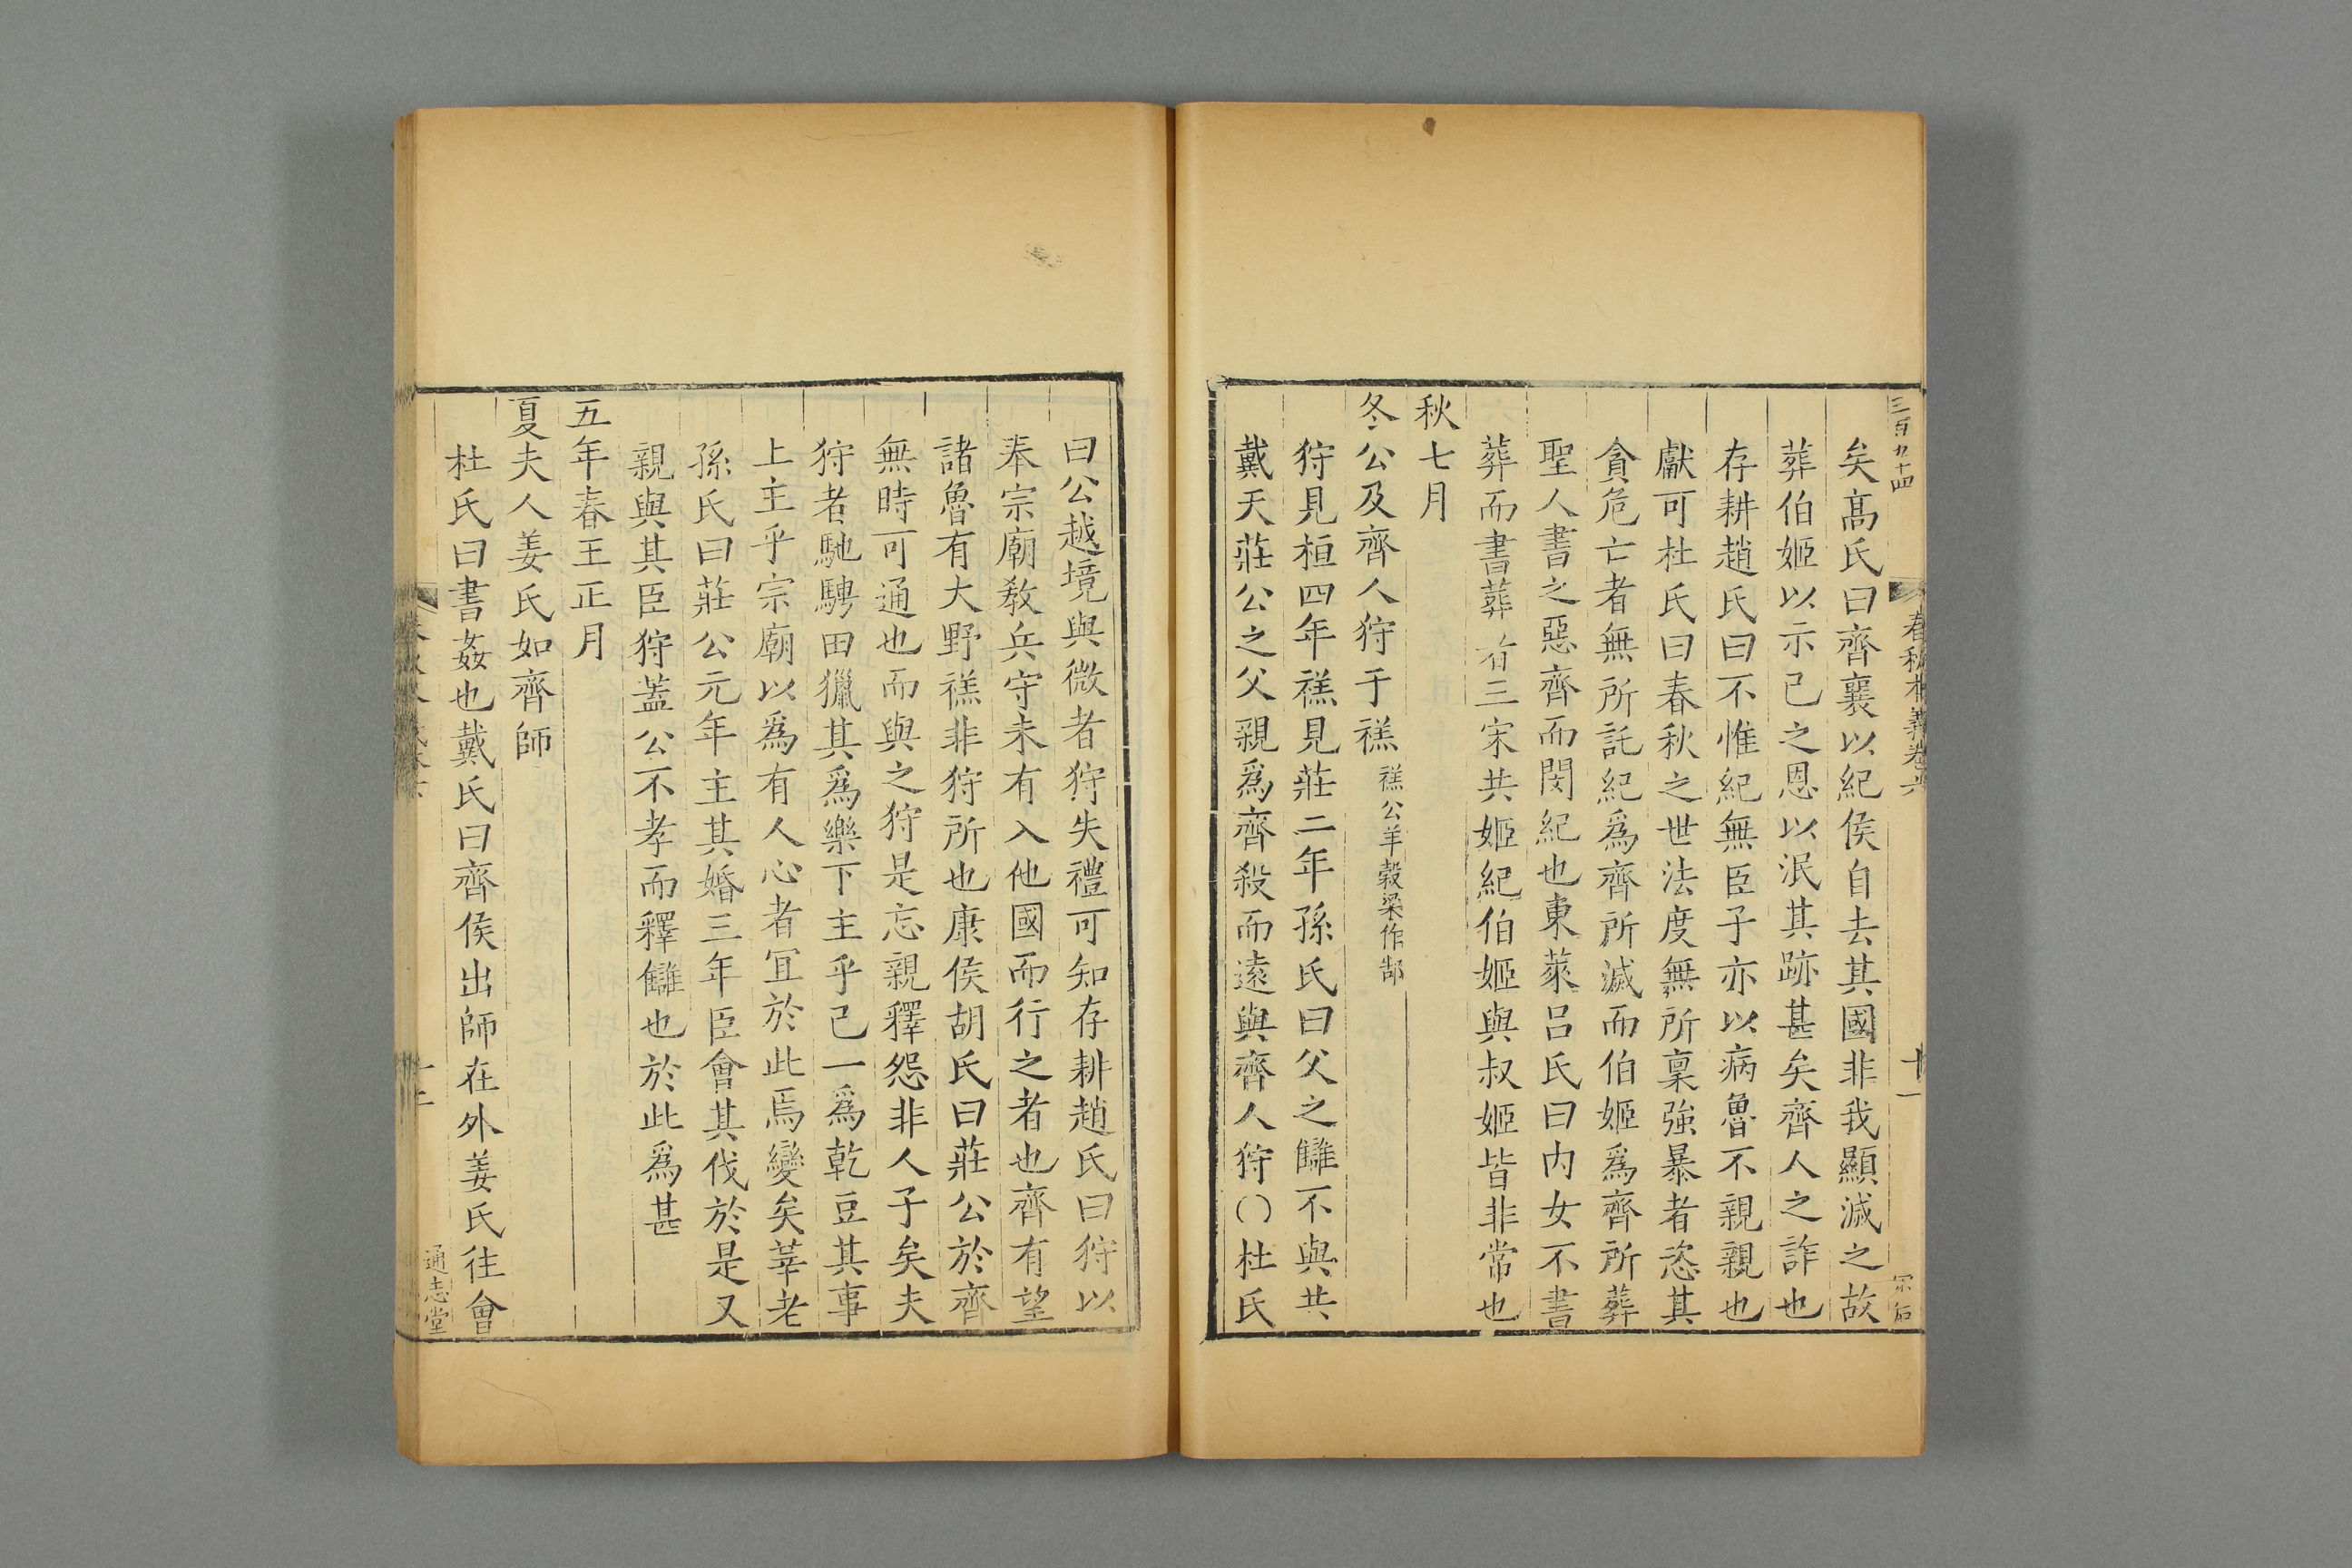 三百九十四
春秋本義卷六
十一
矣髙氏曰齊襄以紀侯自去其國非我顯滅之故
葬伯姬以示己之恩以泯其跡甚矣齊人之詐也
存耕趙氏曰不惟紀無臣子亦以病魯不親親也
獻可杜氏曰春秋之世法度無所稟強暴者恣其
貪危亡者無所託紀爲齊所滅而伯姬爲齊所葬
聖人書之惡齊而閔紀也東萊呂氏曰内女不書
葬而書葬者三宋共姬紀伯姬與叔姬皆非常也
秋七月
冬公及齊人狩于禚禚公羊穀梁作郜
狩見桓四年禚見莊二年孫氏曰父之讎不與共
戴天莊公之父親爲齊殺而遠與齊人狩○杜氏
曰公越境與微者狩失禮可知存耕趙氏曰狩以
奉宗廟教兵守未有入他國而行之者也齊有望
諸魯有大野禚非狩所也康侯胡氏曰莊公於齊
無時可通也而與之狩是忘親釋怨非人子矣夫
狩者馳騁田獵其爲樂下主乎己一爲乾豆其事
上主乎宗廟以爲有人心者宜於此焉變矣莘老
孫氏曰莊公元年主其婚三年臣會其伐於是又
親與其臣狩蓋公不孝而釋讎也於此爲甚
五年春王正月
夏夫人姜氏如齊師
杜氏曰書姦也戴氏曰齊侯出師在外姜氏往會
通志堂